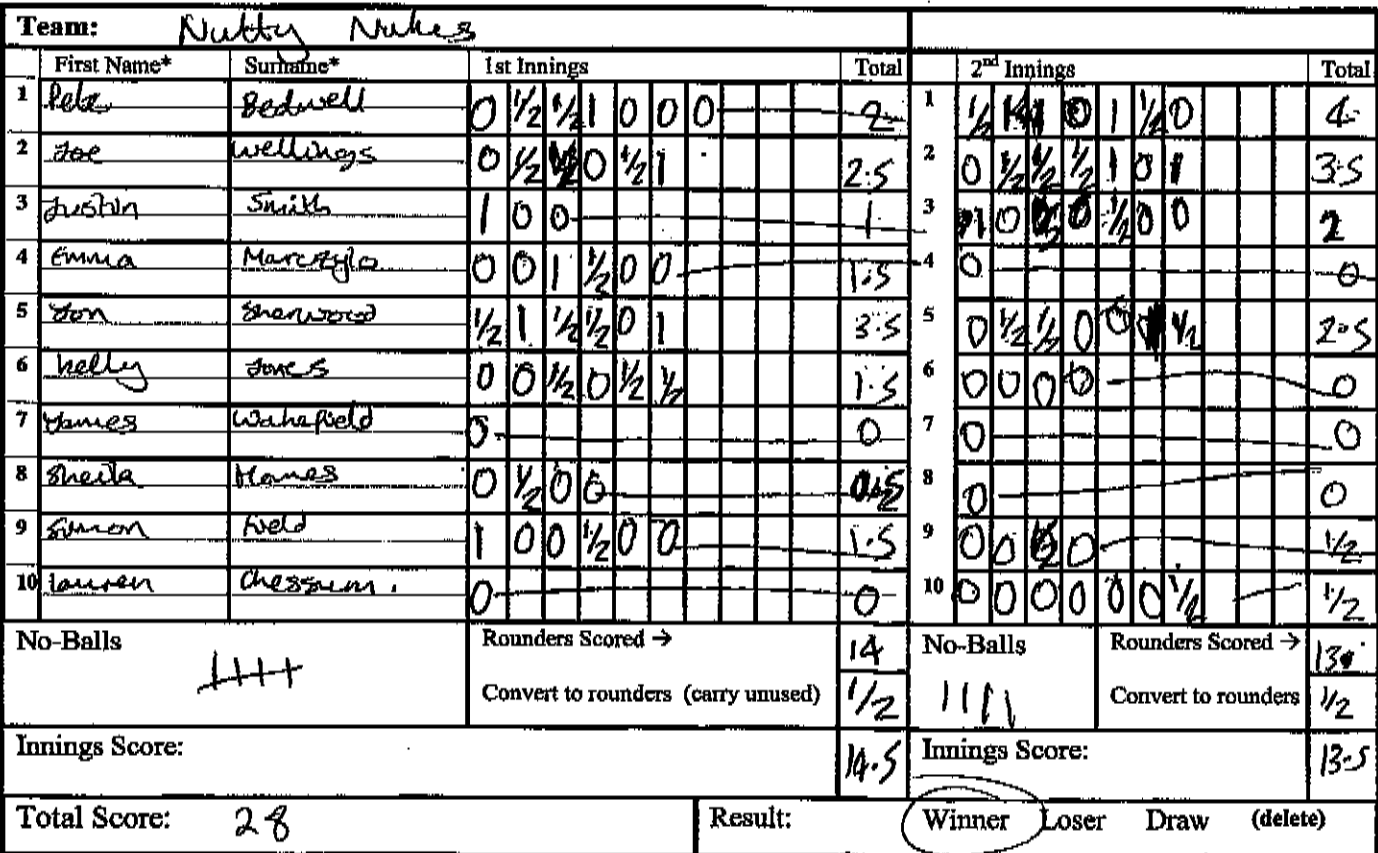 Team: Nutty Nukes
First Name* Surname* 1st Innings Total 2nd Innings Total
1 Pete Bedwell 0 1/2 1/2 1 0 0 0 2 1 1/2 0 1 1/2 0 4
2 Joe Wellings 0 1/2 0 1/2 1 2.5 2 0 1/2 1/2 1/2 1 0 1 3.5
3 Justin Smith 1 0 0 1 3 1 0 0 1/2 0 0 2
4 Emma Marczylo 0 0 1 1/2 0 0 1.5 4 0 0
5 Jon Sherwood 1/2 1 1/2 1/2 0 1 3.5 5 0 1/2 1/2 0 0 1/2 2.5
6 Kelly Jones 0 0 1/2 0 1/2 1/2 1.5 6 0 0 0 0 0
7 James Wakefield 0 0 7 0 0
8 Sheila Hames 0 1/2 0 0 0.5 8 0 0
9 Simon Field 1 0 0 1/2 0 0 1.5 9 0 0 0 1/2
10 Lauren Chessum. 0 0 10 0 0 0 0 0 0 1/2 1/2
No-Balls Rounders Scored → 14 No-Balls Rounders Scored → 13
Convert to rounders (carry unused) 1/2 1111 Convert to rounders 1/2
Innings Score: 14.5 Innings Score: 13.5
Total Score: 28 Result: Winner Loser Draw (delete)